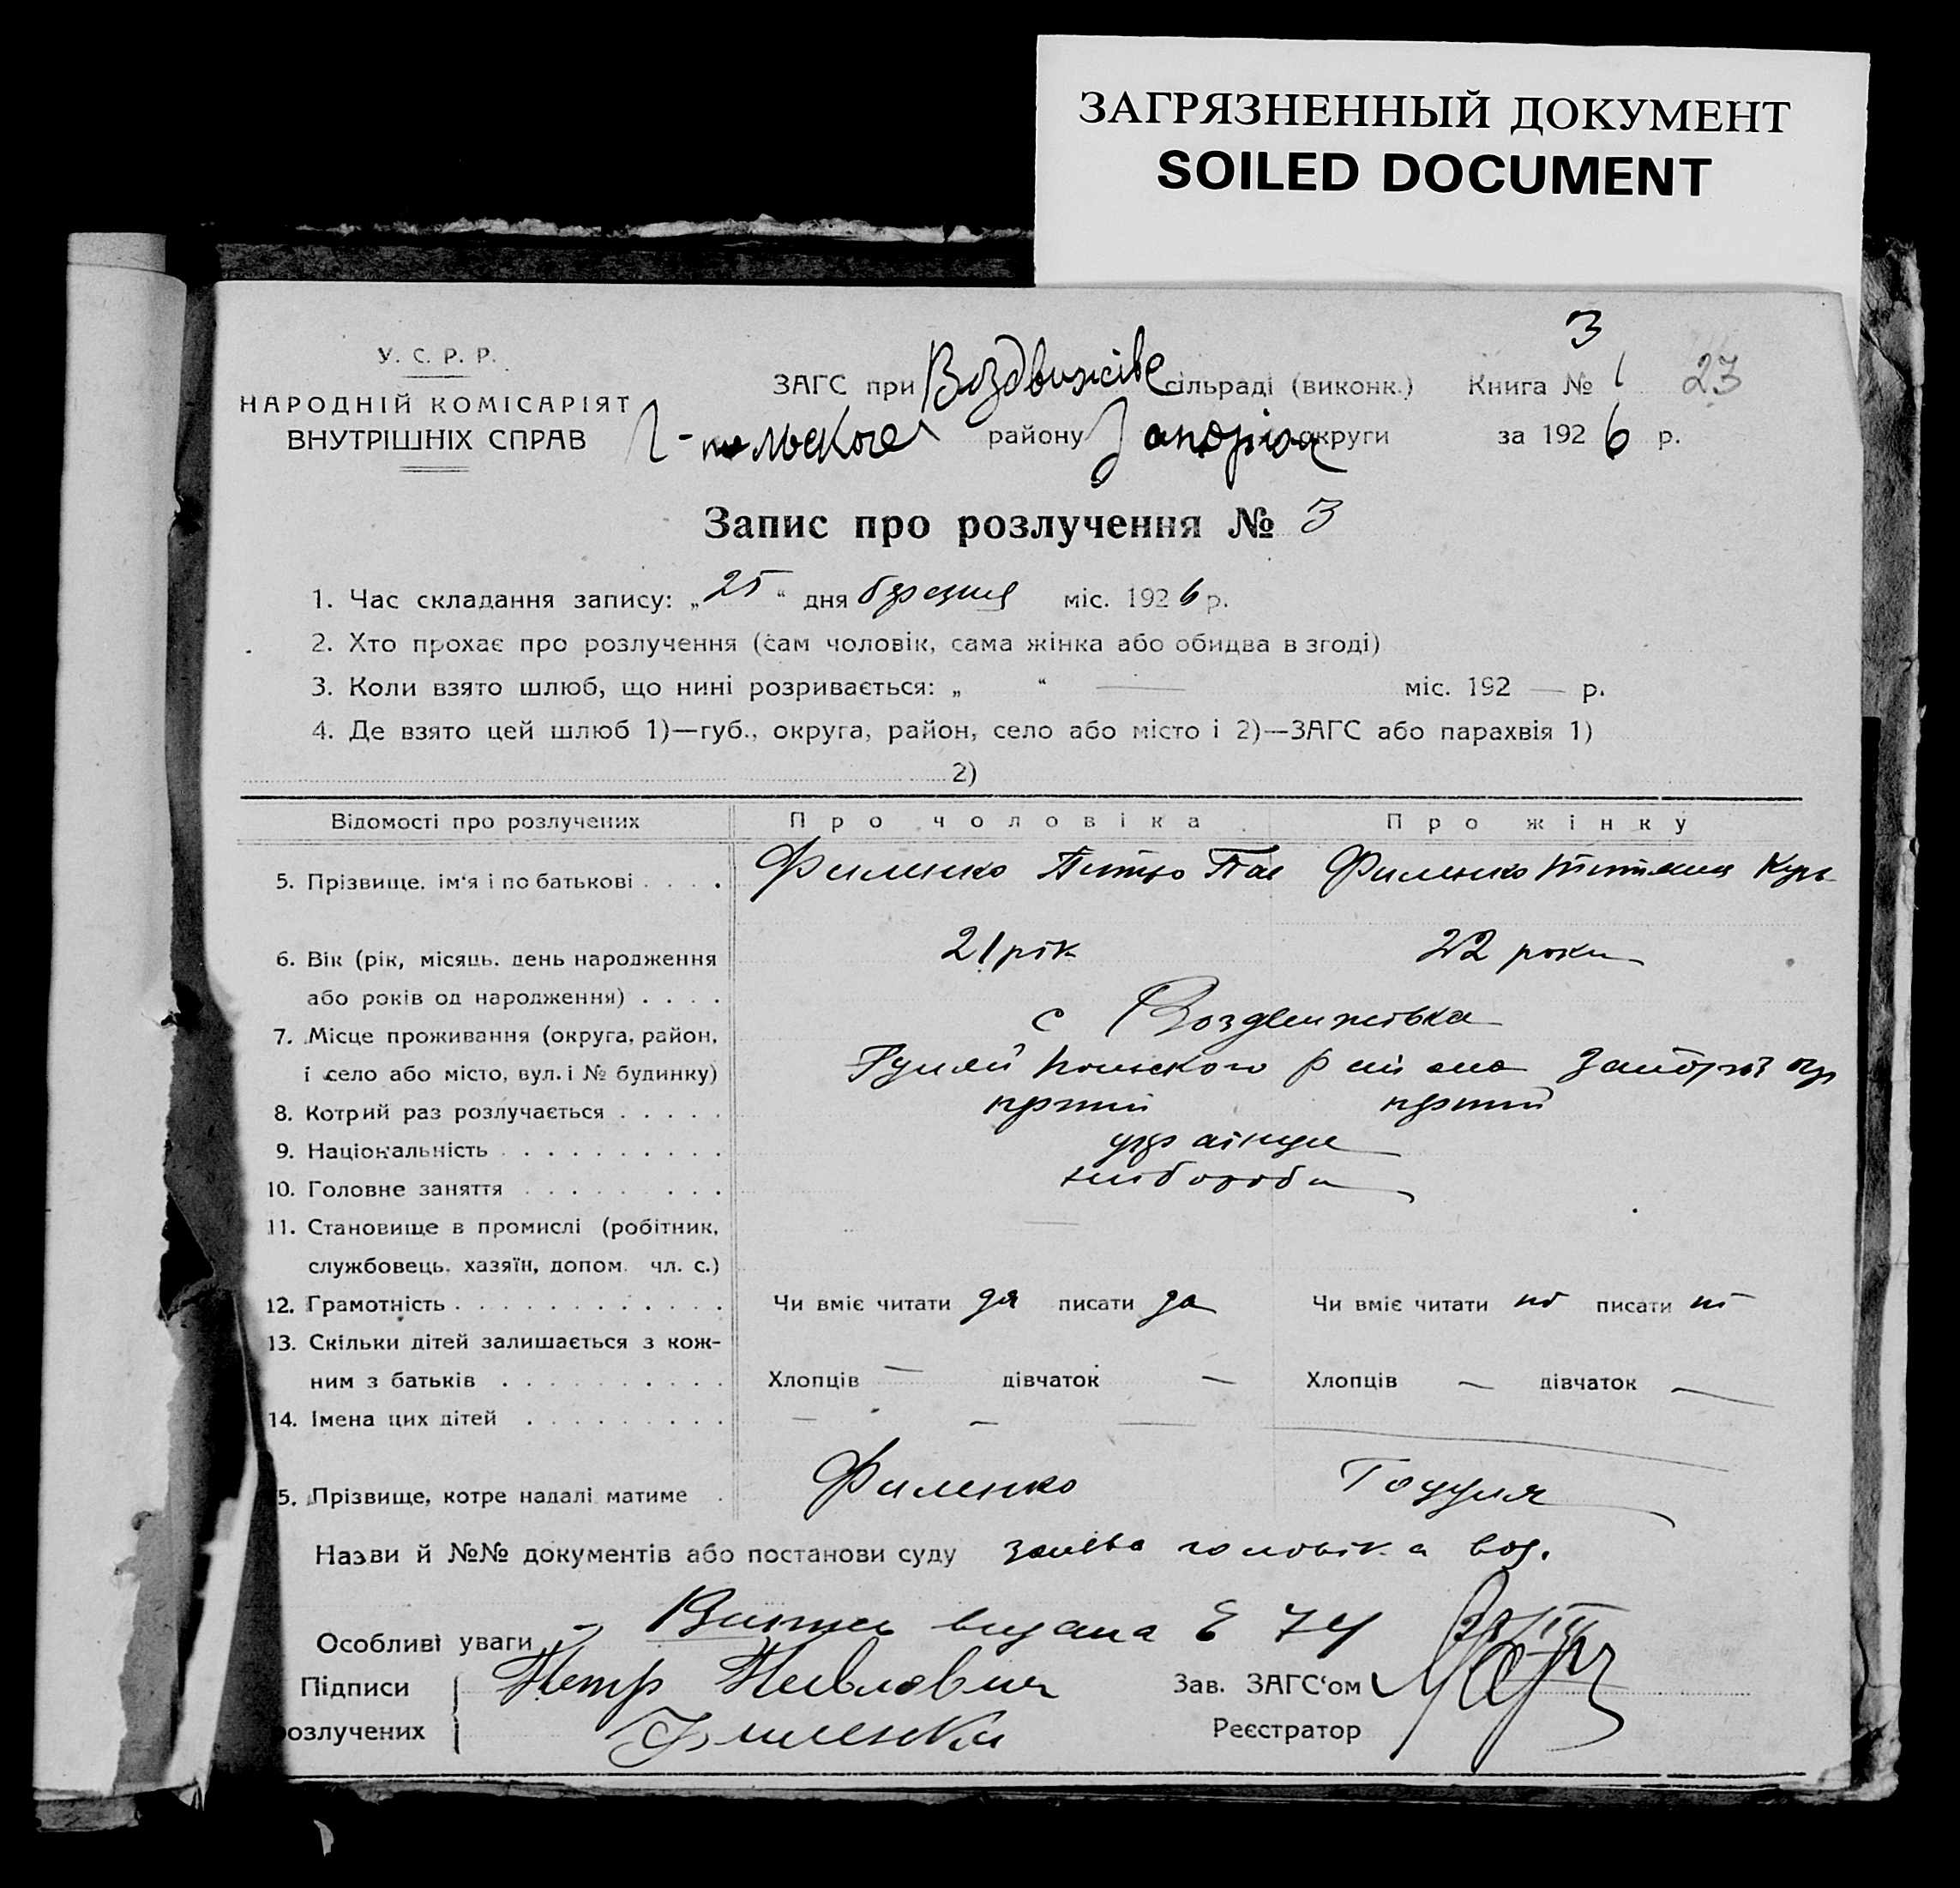 ЗАГРЯЗНЕННЫЙ ДОКУМЕНТ
SOILED DOCUMENT
3
У. С. Р. Р.
НАРОДНІЙ КОМІСАРІЯТ
ВНУТРІШНІХ СПРАВ
ЗАГС при Воздвижівс сільраді (виконк.) Книга № 1 23
Г-польского району Запоріж округи за 1926 р.
Запис про розлучення № 3
1. Час складання запису: „25“ дня березня міс. 1926 р.
2. Хто прохає про розлучення (сам чоловік, сама жінка або обидва в згоді)
3. Коли взято шлюб, що нині розривається: „ “ — міс. 192 — р.
4. Де взято цей шлюб 1)—губ., округа, район, село або місто і 2)—ЗАГС або парахвія 1)
2)
Відомості про розлучених Про чоловіка Про жінку
5. Прізвище, ім‘я і по батькові . . . . Филенко Петро Пав Филенко Титяна Кир
6. Вік (рік, місяць, день народження 21 рік 22 роки
або років од народження) . . . .
7. Місце проживання (округа, район, с Воздвижівка
і село або місто, вул. і № будинку) Гуляй Польского району Запоріз окр
8. Котрий раз розлучається . . . . . перший перший
9. Національність . . . . . . . . . . українци
10. Головне заняття . . . . . . . . хлібороби
11. Становище в промислі (робітник, —
службовець, хазяїн, допом. чл. с.)
12. Грамотність . . . . . . . . . . . . Чи вміє читати да писати да Чи вміє читати ні писати ні
13. Скільки дітей залишається з кож-
ним з батьків . . . . . . . . . . Хлопців — дівчаток — Хлопців — дівчаток —
14. Імена цих дітей . . . . . . . . . — — —
5. Прізвище, котре надалі матиме . Филенко Гоцуля
Назви й №№ документів або постанови суду заява чоловіка
Особливі уваги Витяг видана 74
Підписи Петр Павлович Зав. ЗАГС‘ом
розлучених Филенко Реєстратор